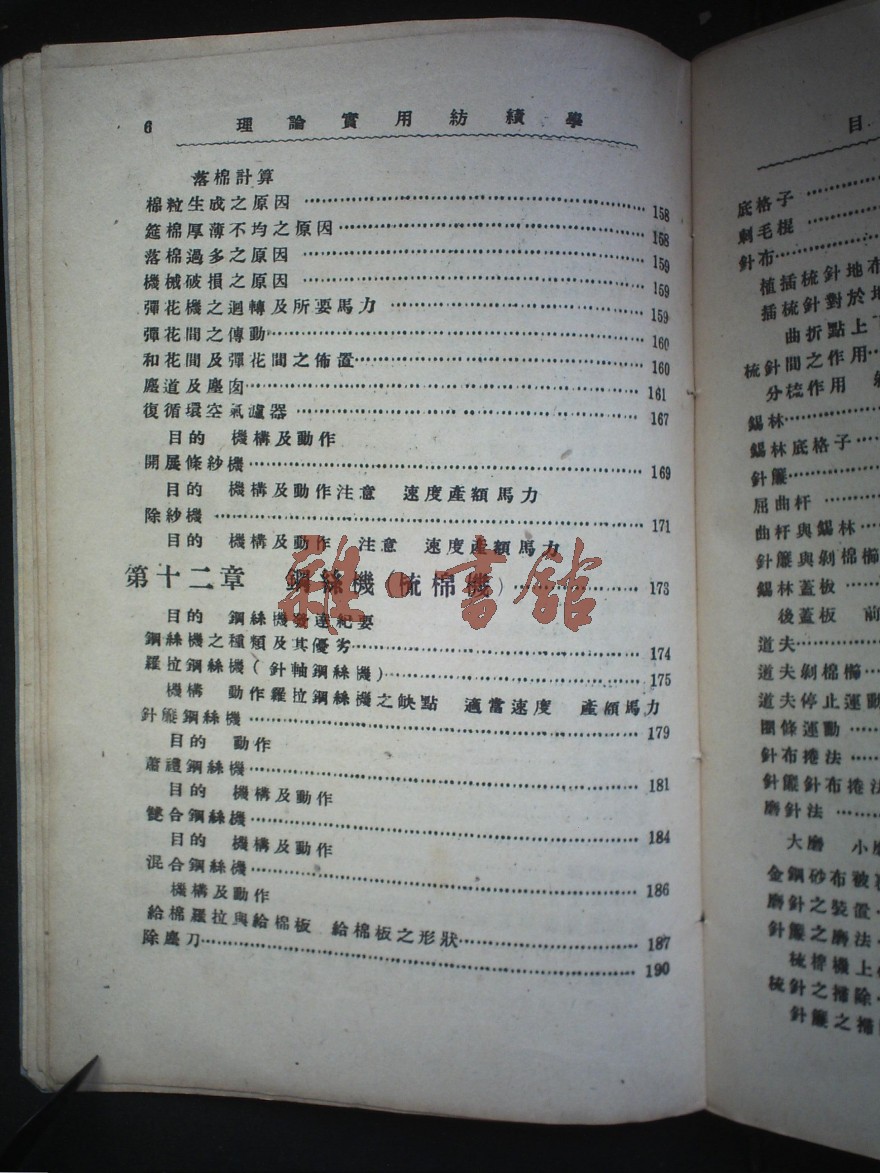 6 理論實用紡績學
落棉計算
棉粒生成之原因 158
筵棉厚薄不均之原因 158
落棉過多之原因 159
機械破損之原因 159
彈花機之迴轉及所要馬力 159
彈花間之傳動 160
和花間及彈花間之佈置 160
塵道及塵囱 161
復循環空氣濾器 167
目的 機構及動作
開展條紗機 169
目的 機構及動作注意 速度產額馬力
除紗機 171
目的 機構及動作 注意 速度產額馬力
第十二章 鋼絲機 梳棉機) 173
目的 鋼絲機發達紀要
鋼絲機之種類及其優劣 174
羅拉鋼絲機(針軸鋼絲機) 175
機構 動作羅拉鋼絲機之缺點 適當速度 產額馬力
針簾鋼絲機 179
目的 動作
蕭禮鋼絲機 181
目的 機構及動作
雙合鋼絲機 184
目的 機構及動作
混合鋼絲機 186
機構及動作
給棉羅拉與給棉板 給棉板之形狀 187
除塵刀 190
雜·書館
目
底格子
刺毛棍
針布
植插梳針地布
插梳針對於地
曲折點上
梳針間之作用
分梳作用
錫林
錫林底格子
針簾
屈曲杆
曲杆與錫林
針簾與剝棉櫛
錫林蓋板
後蓋板 前
道夫
道夫剝棉櫛
道夫停止運動
圈條運動
針布捲法
針簾針布捲法
磨針法
大磨 小磨
金鋼砂布被卷
磨針之裝置
針簾之磨法
梳棉機上
梳針之掃除
針簾之掃